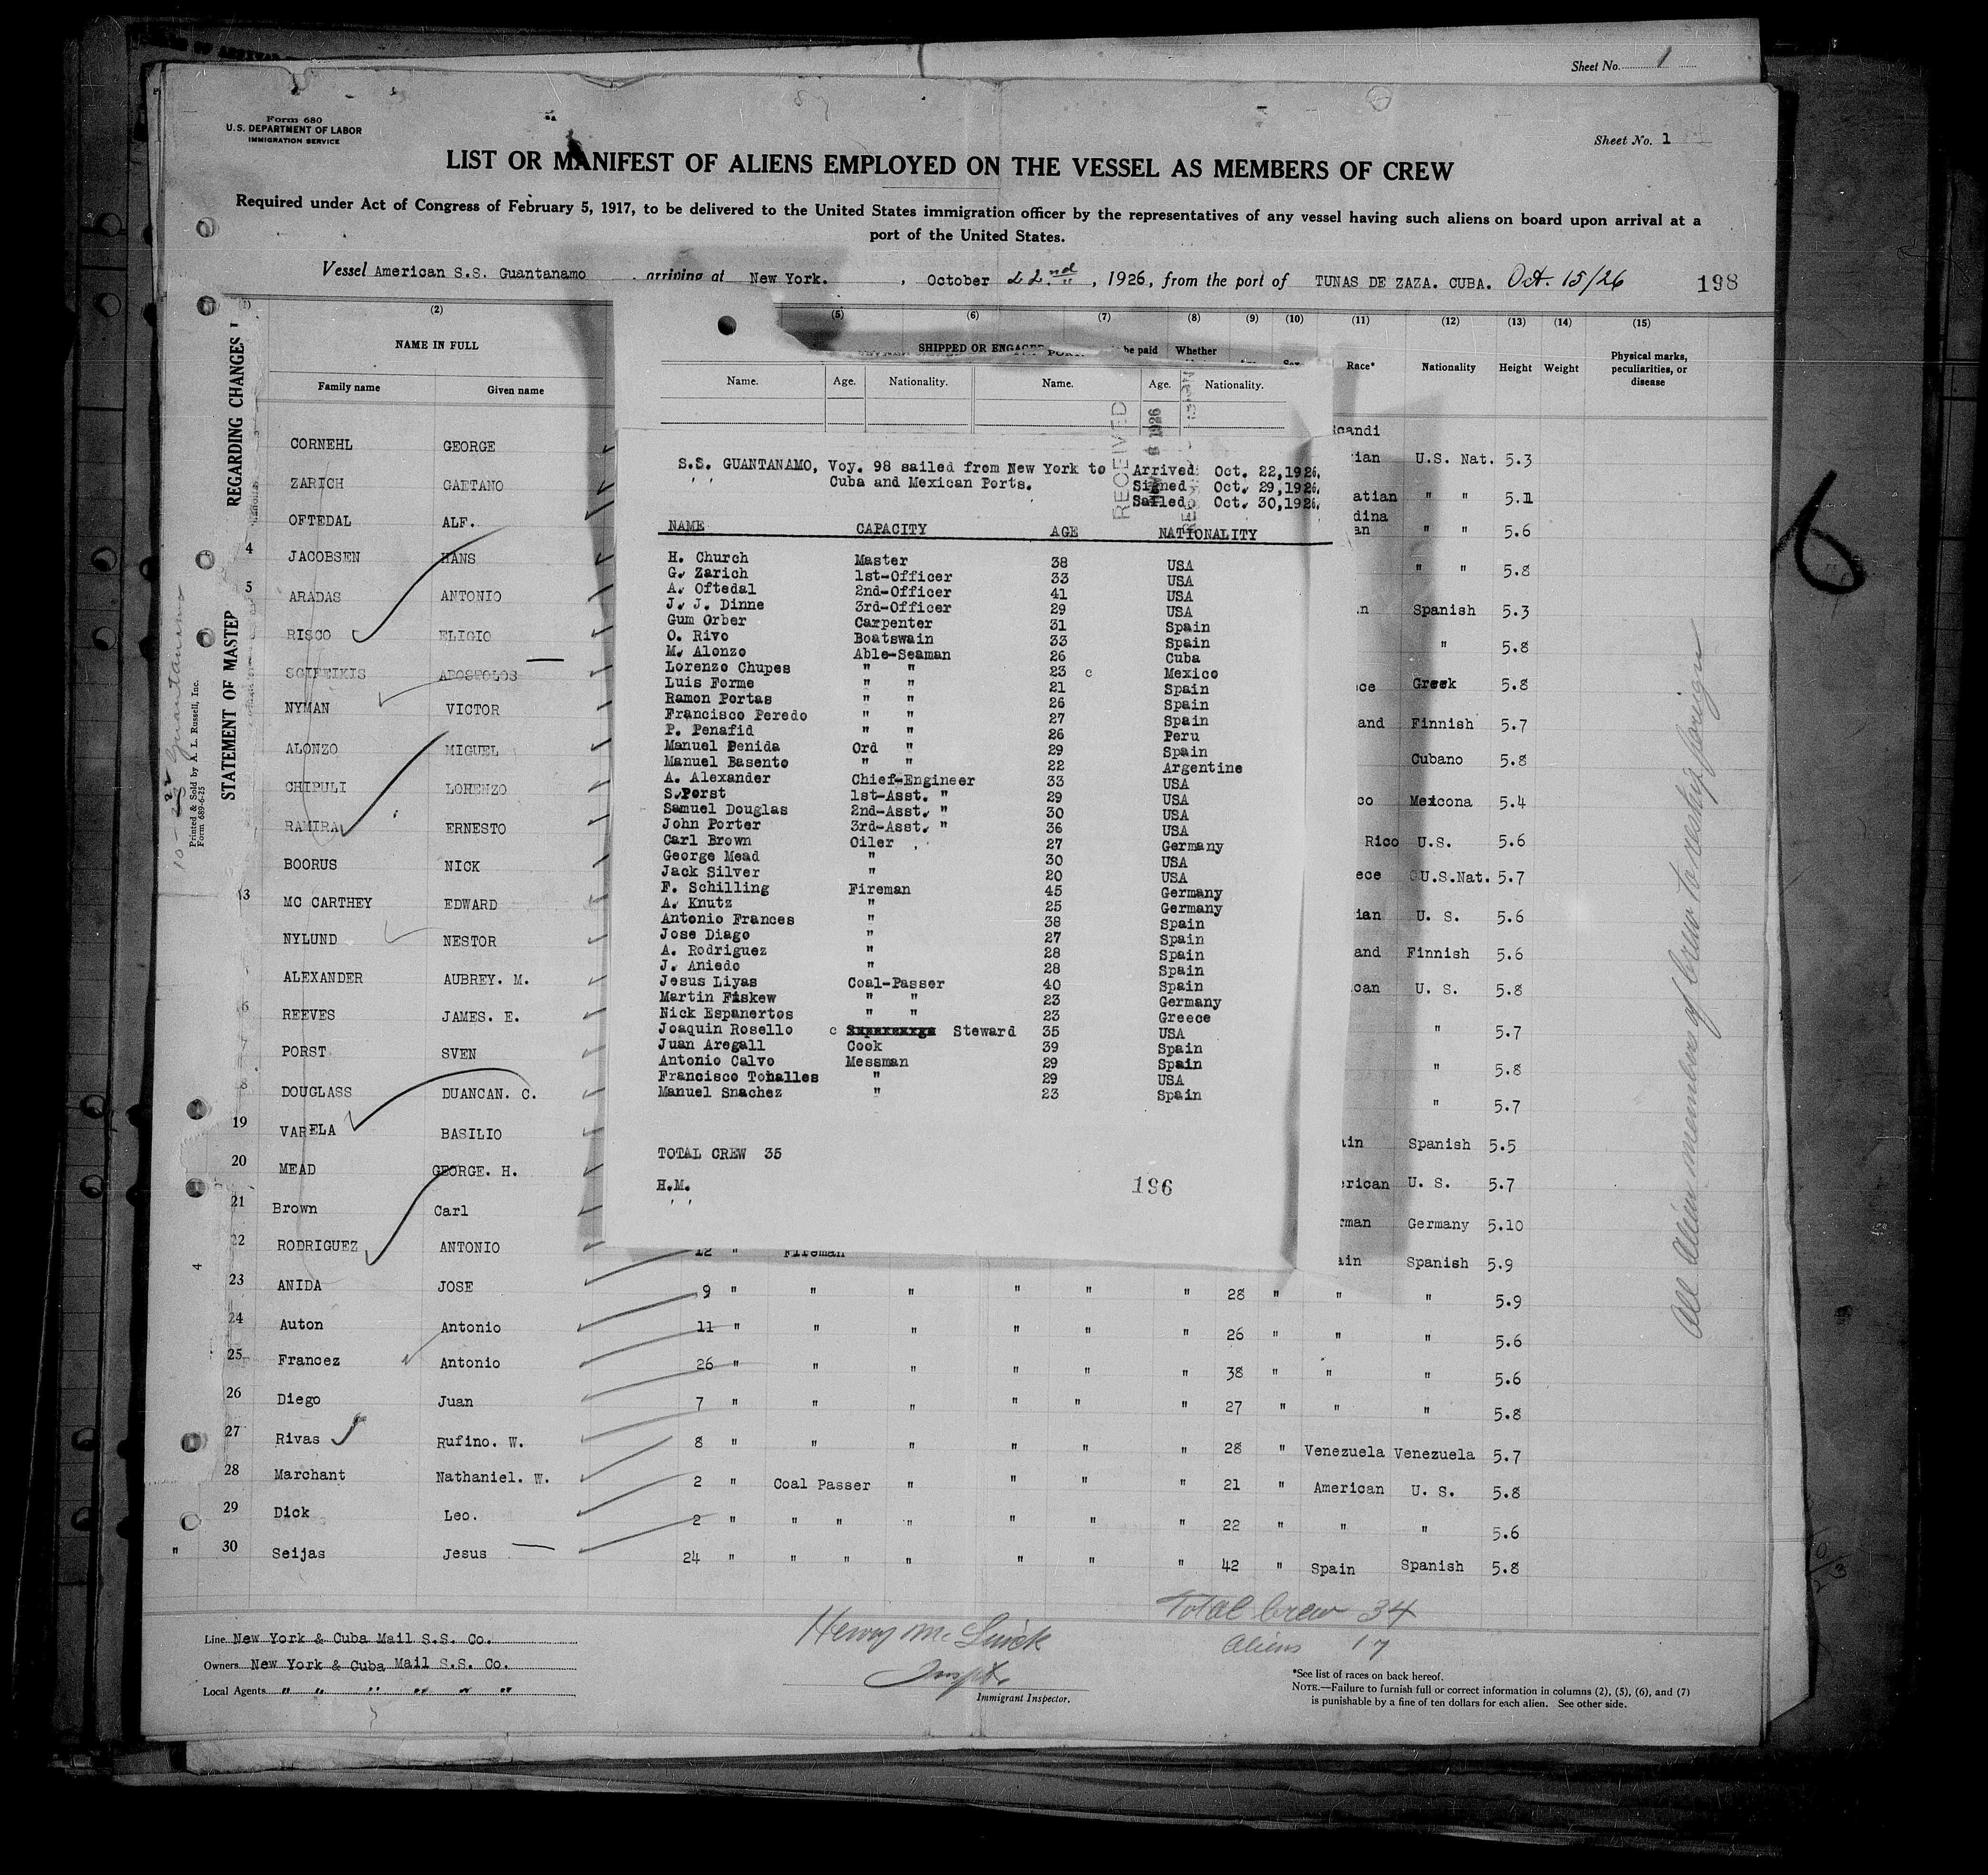 Sheet No. 1
Form 680
U.S. DEPARTMENT OF LABOR
IMMIGRATION SERVICE
Sheet No. 1
LIST OR MANIFEST OF ALIENS EMPLOYED ON THE VESSEL AS MEMBERS OF CREW
Required under Act of Congress of February 5, 1917, to be delivered to the United States immigration officer by the representatives of any vessel having such aliens on board upon arrival at a
port of the United States.
Vessel American S.S. Guantanamo arriving at New York. , October 22nd , 1926, from the port of TUNAS DE ZAZA. CUBA. Oct. 15/26 198
(1) (2) (5) (6) (7) (8) (9) (10) (11) (12) (13) (14) (15)
NAME IN FULL SHIPPED OR ENGAGED be paid Whether
Family name Given name Race* Nationality Height Weight Physical marks, peculiarities, or disease
Name. Age. Nationality. Name. Age. Nationality.
REGARDING CHANGES
STATEMENT OF
Printed & Sold by A. L. Russell, Inc.
Form 689-6-25
RECEIVED
1926
S.S. GUANTANAMO, Voy. 98 sailed from New York to Arrived Oct. 22,1926.
Cuba and Mexican Ports. Signed Oct. 29,1926.
Sailed Oct. 30,1926.
NAME CAPACITY AGE NATIONALITY
H. Church Master 38 USA
G. Zarich 1st-Officer 33 USA
A. Oftedal 2nd-Officer 41 USA
J. J. Dinne 3rd-Officer 29 USA
Gum Orber Carpenter 31 Spain
O. Rivo Boatswain 33 Spain
M. Alonzo Able-Seaman 26 Cuba
Lorenzo Chupes " " 23 c Mexico
Luis Forme " " 21 Spain
Ramon Portas " " 26 Spain
Francisco Peredo " " 27 Spain
P. Penafid " " 26 Peru
Manuel Penida Ord " 29 Spain
Manuel Basento " " 22 Argentine
A. Alexander Chief-Engineer 33 USA
S.Porst 1st-Asst. " 29 USA
Samuel Douglas 2nd-Asst. " 30 USA
John Porter 3rd-Asst. " 36 USA
Carl Brown Oiler 27 Germany
George Mead " 30 USA
Jack Silver " 20 USA
F. Schilling Fireman 45 Germany
A. Knutz " 25 Germany
Antonio Frances " 38 Spain
Jose Diago " 27 Spain
A. Rodriguez " 28 Spain
J. Aniedo " 28 Spain
Jesus Liyas Coal-Passer 40 Spain
Martin Fiskew " " 23 Germany
Nick Espanertos " " 23 Greece
Joaquin Rosello c Steward 35 USA
Juan Aregall Cook 39 Spain
Antonio Calvo Messman 29 Spain
Francisco Tohalles " 29 USA
Manuel Snachez " 23 Spain
TOTAL CREW 35
H.M. 196
CORNEHL GEORGE U.S. Nat. 5.3
ZARICH GAETANO " " 5.1
OFTEDAL ALF. " " 5.6
4 JACOBSEN HANS " " 5.8
5 ARADAS ANTONIO Spanish 5.3
RISCO ELIGIO " 5.8
SGIFEIKIS APOSTOLOS Greek 5.8
NYMAN VICTOR Finnish 5.7
ALONZO MIGUEL Cubano 5.8
CHIPULI LORENZO Mexicona 5.4
RAMIRA ERNESTO Rico U.S. 5.6
BOORUS NICK U.S.Nat. 5.7
13 MC CARTHEY EDWARD U. S. 5.6
NYLUND NESTOR Finnish 5.6
ALEXANDER AUBREY. M. U. S. 5.8
6 REEVES JAMES. E. " 5.7
7 PORST SVEN " 5.8
8 DOUGLASS DUANCAN. C. " 5.7
19 VARELA BASILIO Spanish 5.5
20 MEAD GEORGE. H. U. S. 5.7
21 Brown Carl Germany 5.10
22 RODRIGUEZ ANTONIO 12 " Fireman Spanish 5.9
23 ANIDA JOSE 9 " " " " " " 28 " " " 5.9
24 Auton Antonio 11 " " " " " " 26 " " " 5.6
25 Francez Antonio 26 " " " " " " 38 " " " 5.6
26 Diego Juan 7 " " " " " " 27 " " " 5.8
27 Rivas Rufino. W. 8 " " " " " " 28 " Venezuela Venezuela 5.7
28 Marchant Nathaniel. W. 2 " Coal Passer " " " " 21 " American U. S. 5.8
29 Dick Leo. 2 " " " " " " " 22 " " " 5.6
" 30 Seijas Jesus 24 " " " " " " " 42 " Spain Spanish 5.8
All Alien members of Crew to reship foreign
6
10-22 Guantanamo
Total Crew 34
Aliens 17
Line New York & Cuba Mail S.S. Co.
Owners New York & Cuba Mail S.S. Co.
Local Agents " " " " " "
Immigrant Inspector.
*See list of races on back hereof.
NOTE.—Failure to furnish full or correct information in columns (2), (5), (6), and (7)
is punishable by a fine of ten dollars for each alien. See other side.